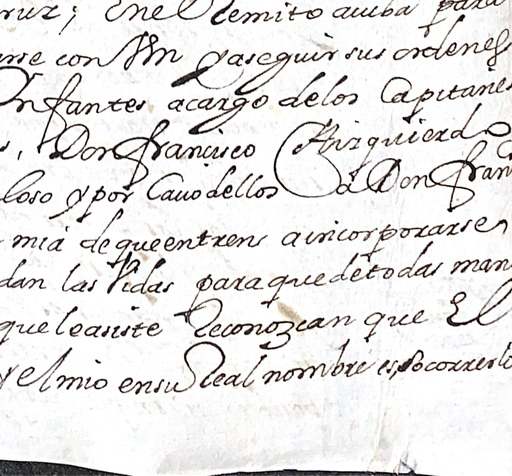 ruz; En el Remito arriba para
irse con Vm y aseguir sus ordenes
Infantes acargo delos Capitanes
Don francisco Yzquierdo
loso y por Cavo dellos a Don fran
mia de que entren a incorporarse
dan las Vidas para que de todas man
que le asiste Reconozcan que El
y el mio ensu Real nombre es, socorrerlo